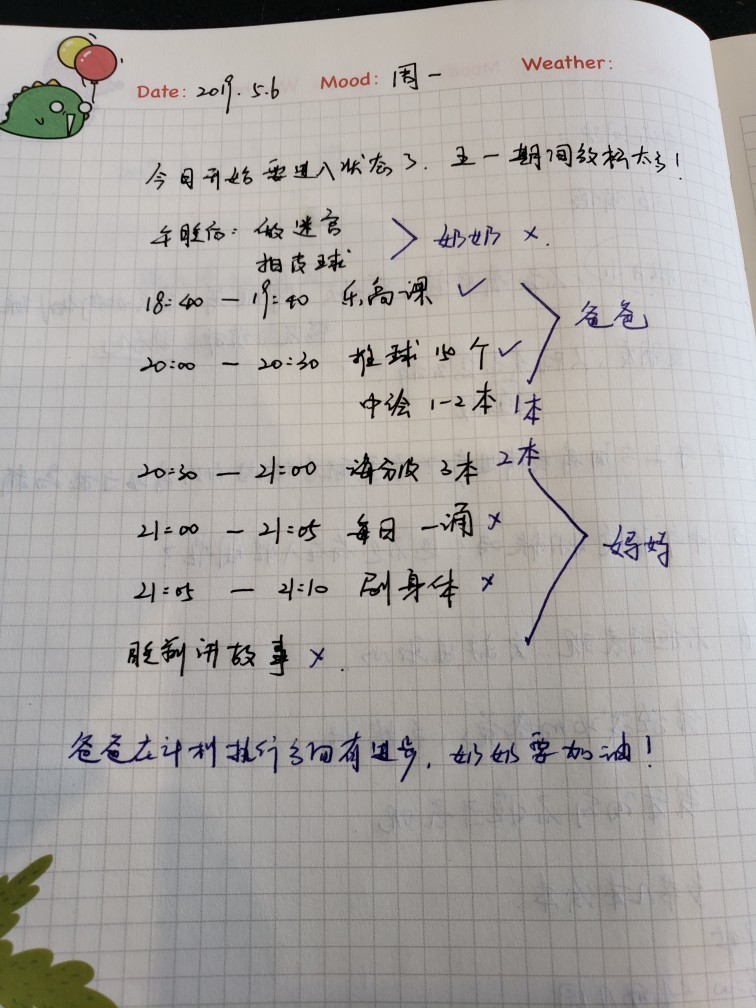 Date: 2019.5.6 Mood: 周一 Weather:
今日开始要进入状态了. 五一期间放松太多!
午睡后: 做迷宫
拍皮球
奶奶 ×.
18:40 — 19:40 乐高课 ✓
爸爸
20:00 — 20:30 推球 150个 ✓
中绘 1-2本 1本
20:30 — 21:00 海尔波 3本 2本
21:00 — 21:05 每日一诵 ×
妈妈
21:05 — 21:10 刷身体 ×
睡前讲故事 ×.
爸爸在计划执行方面有进步, 奶奶要加油!